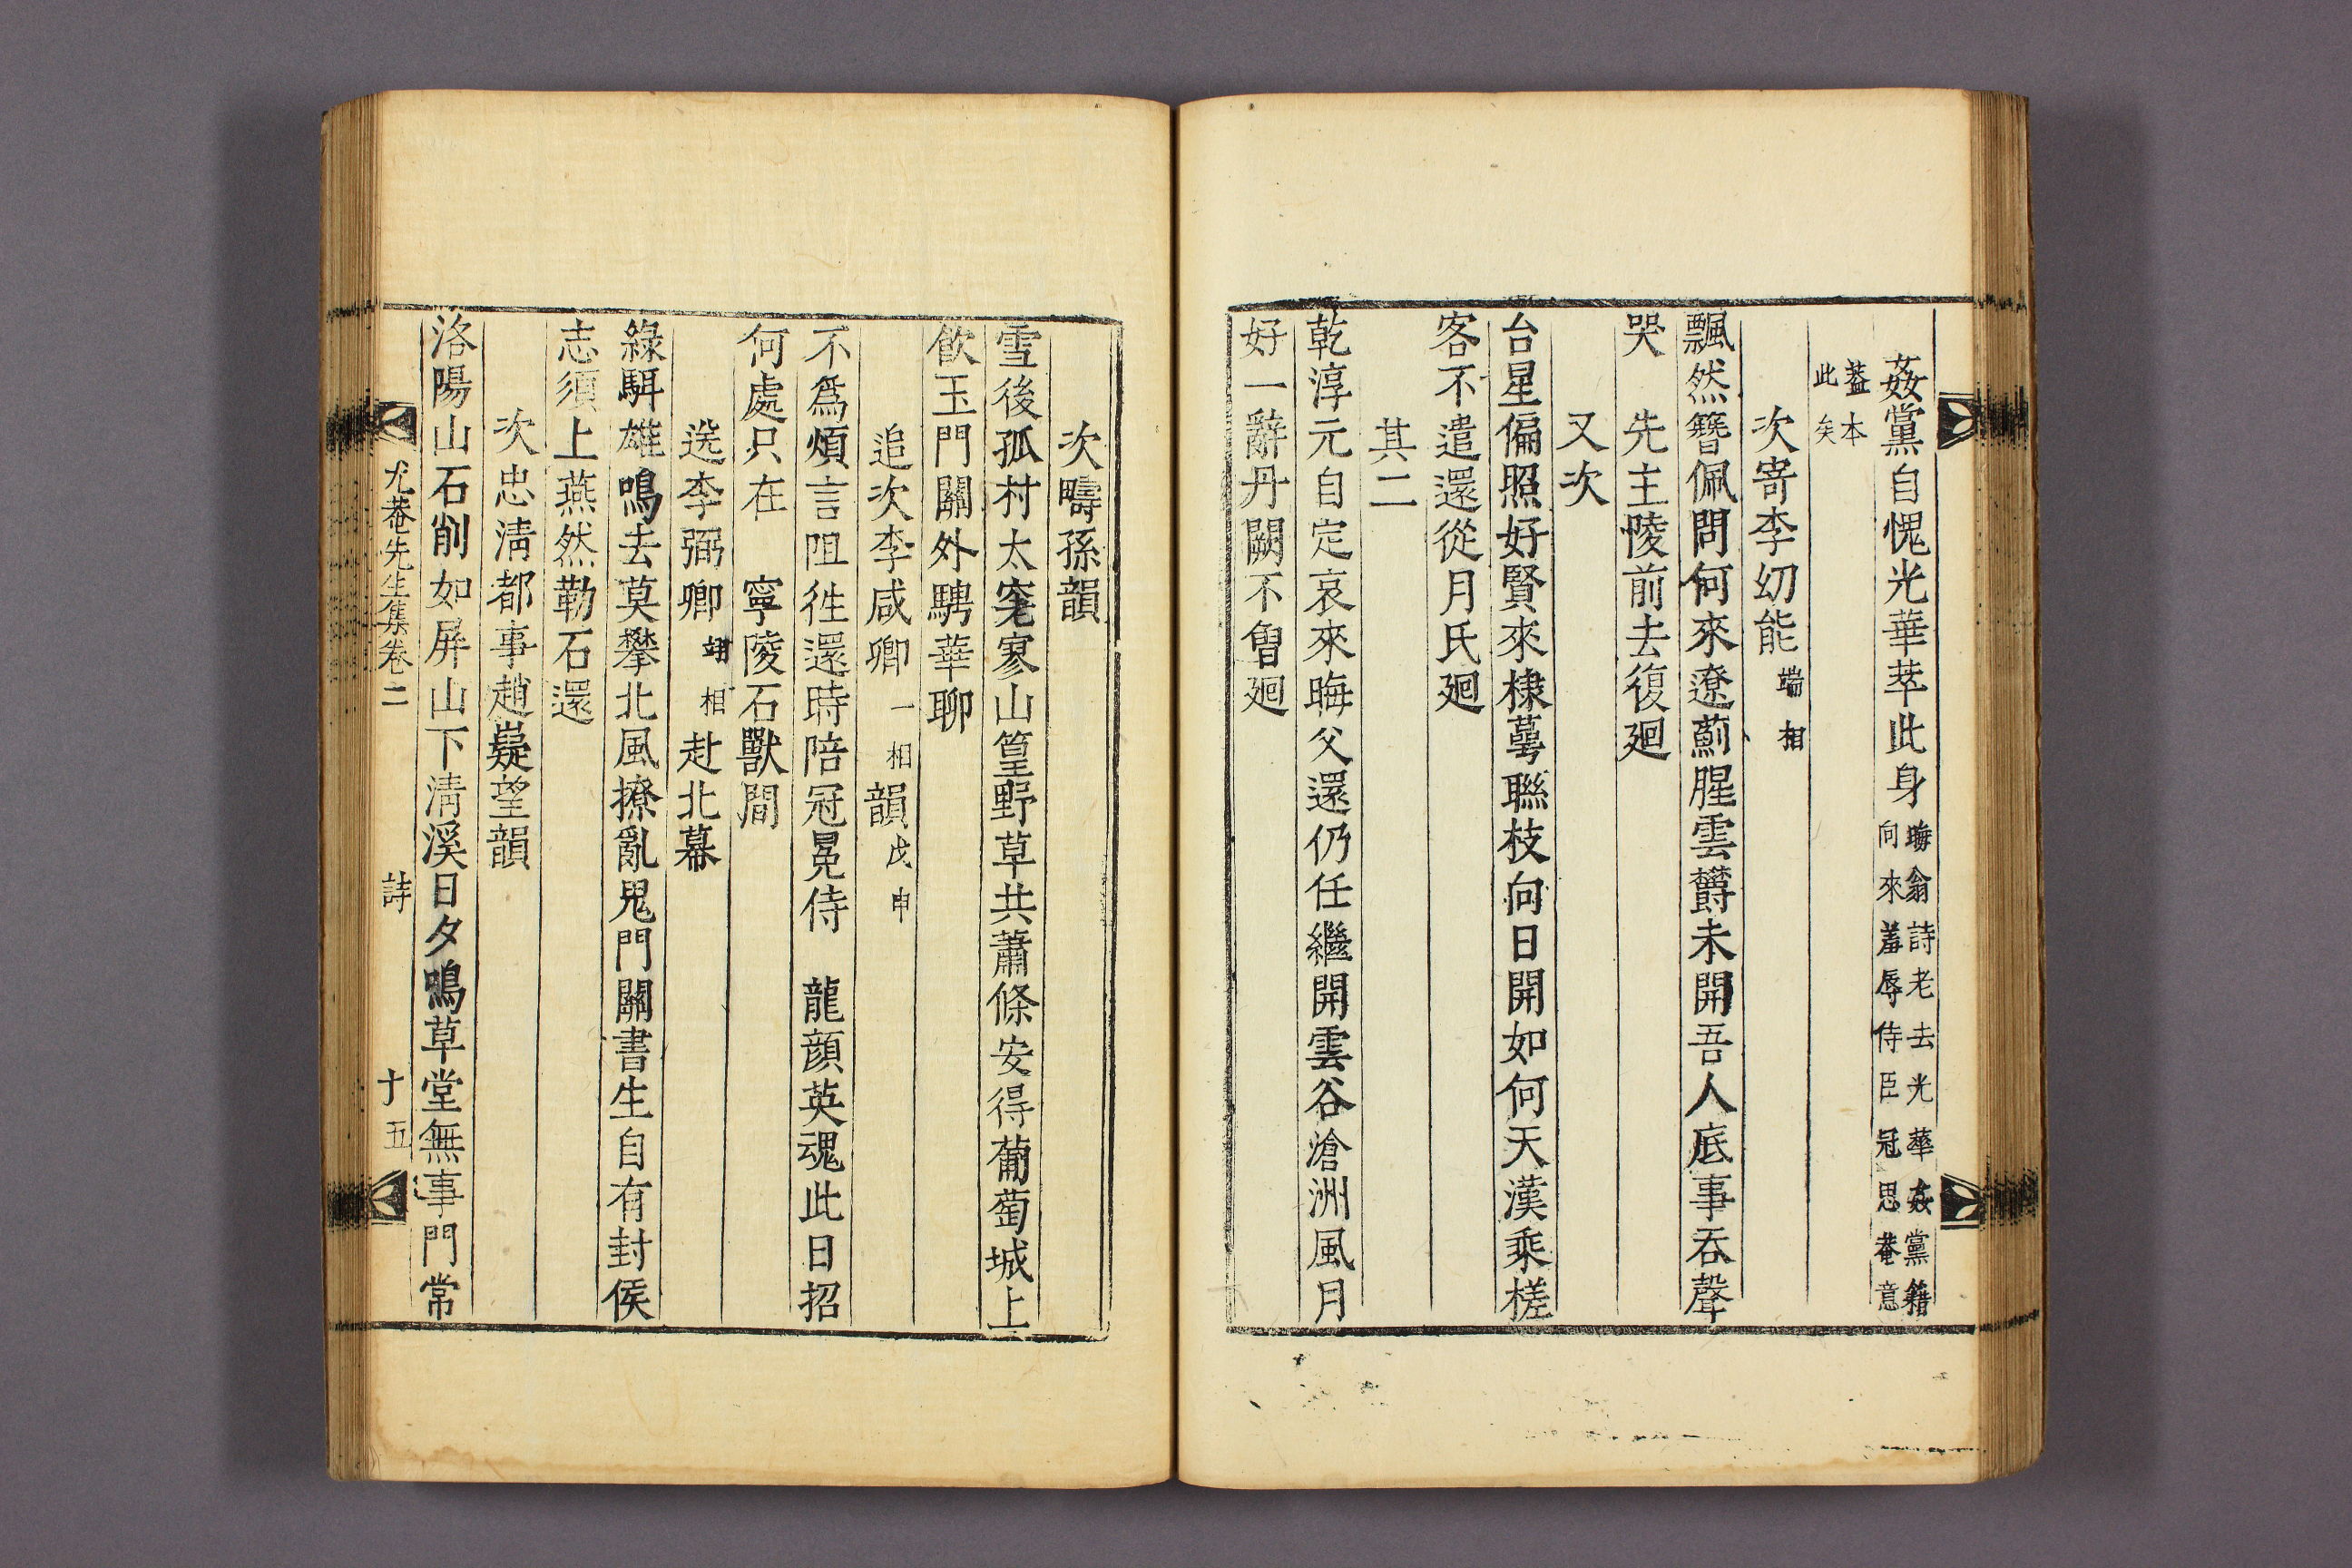 姦黨自愧光華萃此身晦翁詩老去光華姦黨籍向來羞辱侍臣冠思菴意
蓋本此矣
次寄李幼能端相
飄然簪佩問何來遼薊腥雲欝未開吾人底事吞聲
哭　先主陵前去復廻
又次
台星偏照好賢來棣萼聯枝向日開如何天漢乘槎
客不遣還從月氏廻
其二
乾淳元自定哀來晦父還仍任繼開雲谷滄洲風月
好一辭丹闕不曾廻
次疇孫韻
雪後孤村太窄寥山篁野草共蕭條安得葡萄城上
飮玉門關外騁華聊
追次李咸卿一相韻戊申
不爲煩言阻徃還時陪冠冕侍　龍顔英魂此日招
何處只在　寧陵石獸間
送李弼卿翊相赴北幕
綠駬雄鳴去莫攀北風撩亂鬼門關書生自有封侯
志須上燕然勒石還
次忠淸都事趙嶷望韻
洛陽山石削如屛山下淸溪日夕鳴草堂無事門常
尤菴先生集卷二　詩　十五